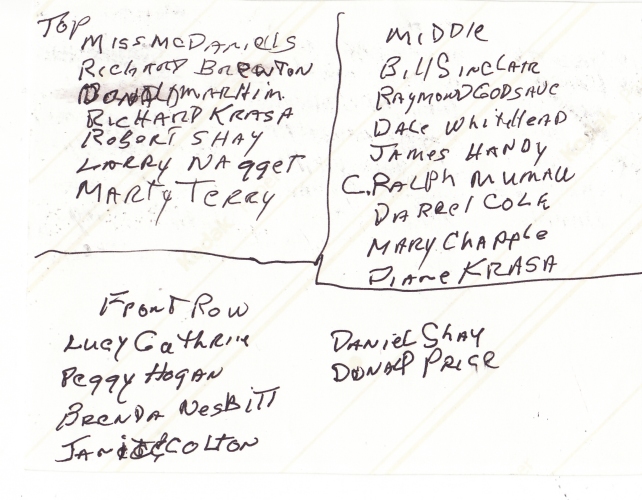 Top
Miss McDaniells
Richard Brewton
Donald Marhim
Richard Krasa
Robert Shay
Larry Nagget
Marty Terry
Middle
Bill Sinclair
Raymond Godsave
Dale Whitehead
James Handy
C. Ralph Mumau
Darrel Cole
Mary Chapple
Diane Krasa
Front Row
Lucy Gathrie
Peggy Hogan
Brenda Nesbitt
Colton
Daniel Shay
Donald Price